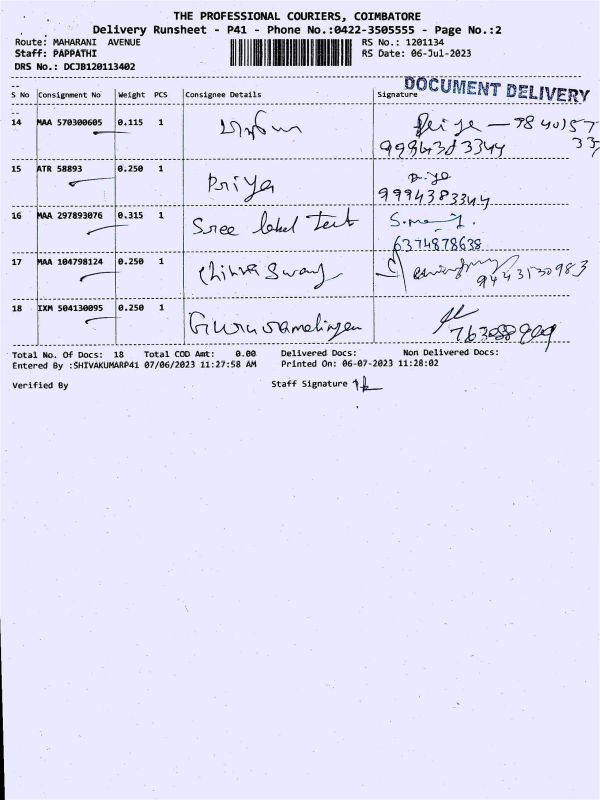 THE PROFESSIONAL COURIERS, COIMBATORE
Delivery Runsheet - P41 - Phone No.:0422-3505555 - Page No.:2
Route: MAHARANI AVENUE RS No.: 1201134
Staff: PAPPATHI RS Date: 06-Jul-2023
DRS No.: DCJB120113402
DOCUMENT DELIVERY
S No Consignment No Weight PCS Consignee Details Signature
14 MAA 570300605 0.115 1
9994383344
15 ATR 58893 0.250 1 Priya
9994383344
16 MAA 297893076 0.315 1 Sree label
6374878638
17 MAA 104798124 0.250 1
9443130983
18 IXM 504130095 0.250 1
Total No. Of Docs: 18 Total COD Amt: 0.00 Delivered Docs: Non Delivered Docs:
Entered By :SHIVAKUMARP41 07/06/2023 11:27:58 AM Printed On: 06-07-2023 11:28:02
Verified By Staff Signature